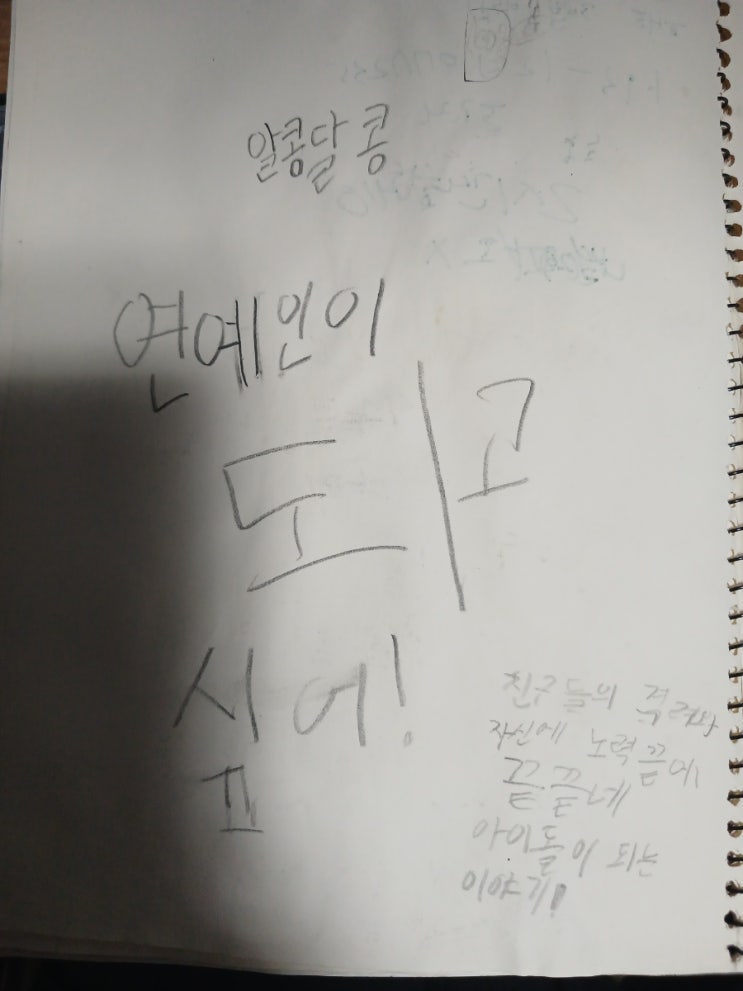 알콩달콩
연예인이
되고
싶어!
친구들의 격려와
자신에 노력 끝에
끝끝네
아이돌이 되는
이야기!